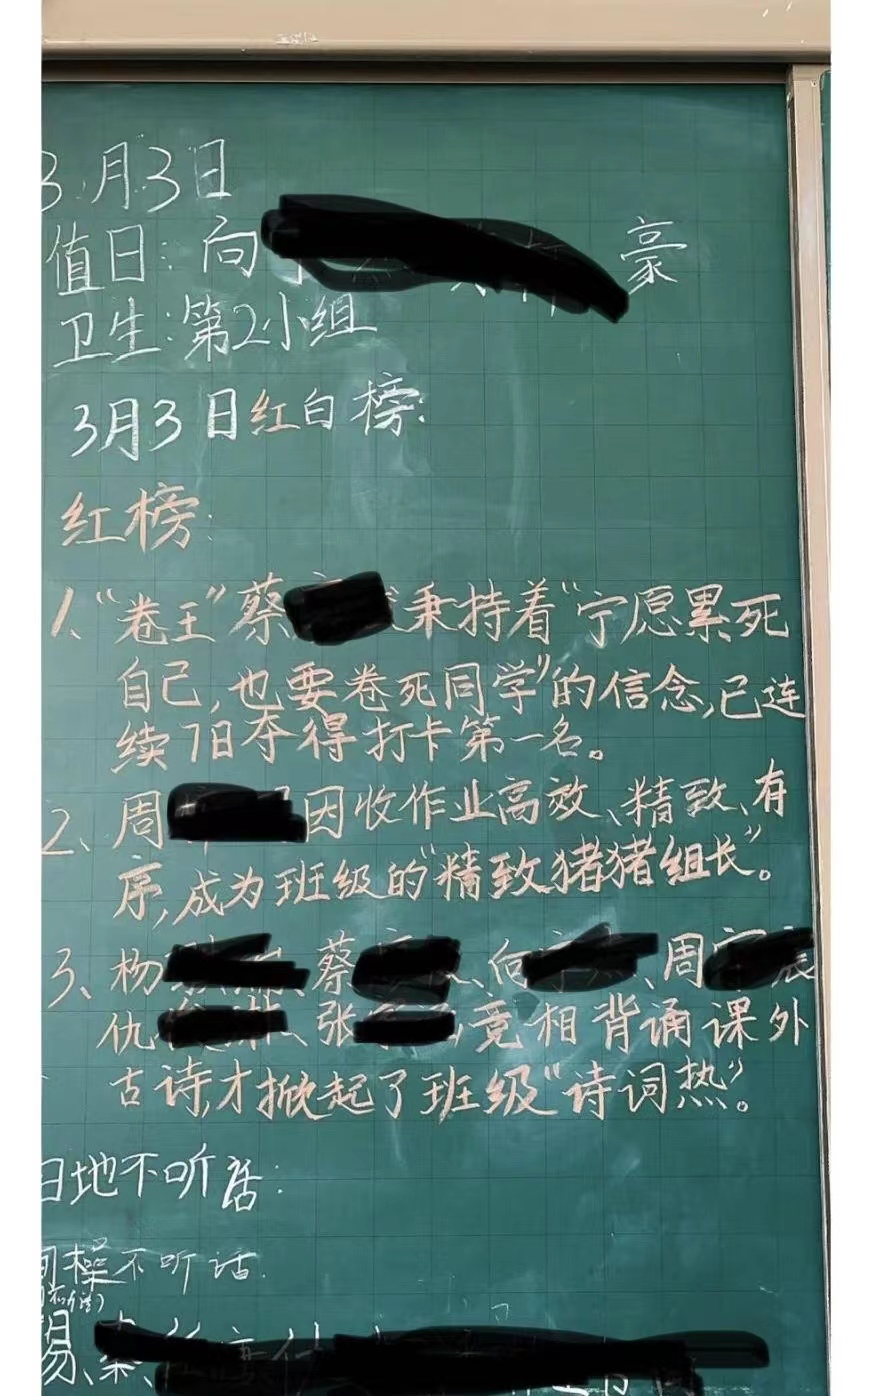 3月3日
值日：向 豪
卫生：第2小组
3月3日红白榜：
红榜：
1、“卷王”蔡 秉持着“宁愿累死
自己，也要卷死同学”的信念，已连
续7日夺得打卡第一名。
2、周 因收作业高效、精致、有
序，成为班级的“精致猪猪组长”。
3、杨 、蔡 、向 、周
仇 、张 竞相背诵课外
古诗，才掀起了班级“诗词热”。
日地不听话：
间操不听话